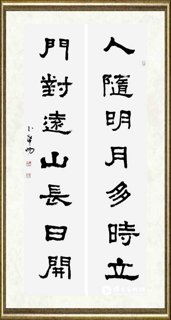 人隨明月多時立
門對遠山長日開